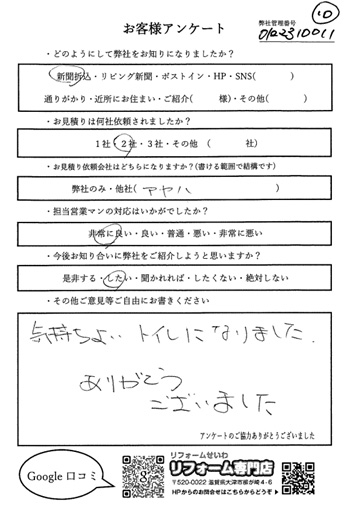 ⑩
お客様アンケート
弊社管理番号
・どのようにして弊社をお知りになりましたか？
新聞折込・リビング新聞・ポストイン・HP・SNS(　　　)
通りがかり・近所にお住まい・ご紹介(　　　様)・その他(　　　)
・お見積りは何社依頼されましたか？
1社・2社・3社・その他　(　　　社)
・お見積り依頼会社はどちらになりますか？(書ける範囲で結構です)
弊社のみ・他社( アヤハ )
・担当営業マンの対応はいかがでしたか？
非常に良い・良い・普通・悪い・非常に悪い
・今後お知り合いに弊社をご紹介しようと思いますか？
是非する・したい・聞かれれば・したくない・絶対しない
・その他ご意見等ご自由にお書きください
気持ちよい トイレになりました.
ありがとう
ございました
アンケートのご協力ありがとうございました
Google 口コミ
リフォームせいわ
リフォーム専門店
〒520-0022 滋賀県大津市柳が崎4-6
HPからのお問合せはこちらからどうぞ